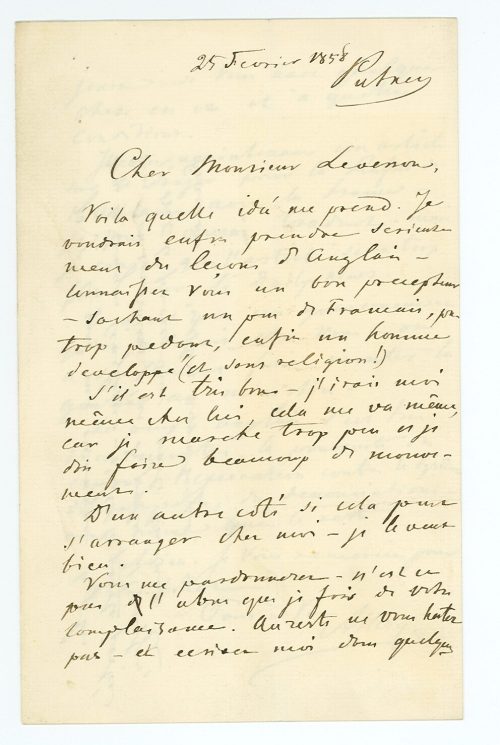 25 Fevrier 1858
Putney
Cher Monsieur Levenson,
Voila quelle idée me prend. Je
voudrais enfin prendre serieuse
ment des leçons d'Anglais –
connaissez vous un bon precepteur
– sachant un peu de Francais, pas
trop pedant, enfin un homme
developpé (et sans religion!)
S'il est très bon – j'irais moi
même chez lui, cela me va même,
car je marche trop peu et je
dois faire beaucoup de mouve-
ment.
D'un autre coté si cela peut
s'arranger chez moi – je le veux
bien.
Vous me pardonnerez – n'est ce
pas l'abus que je fais de votre
complaisance. Au reste ne vous hatez
pas – et ecrivez moi dans quelques